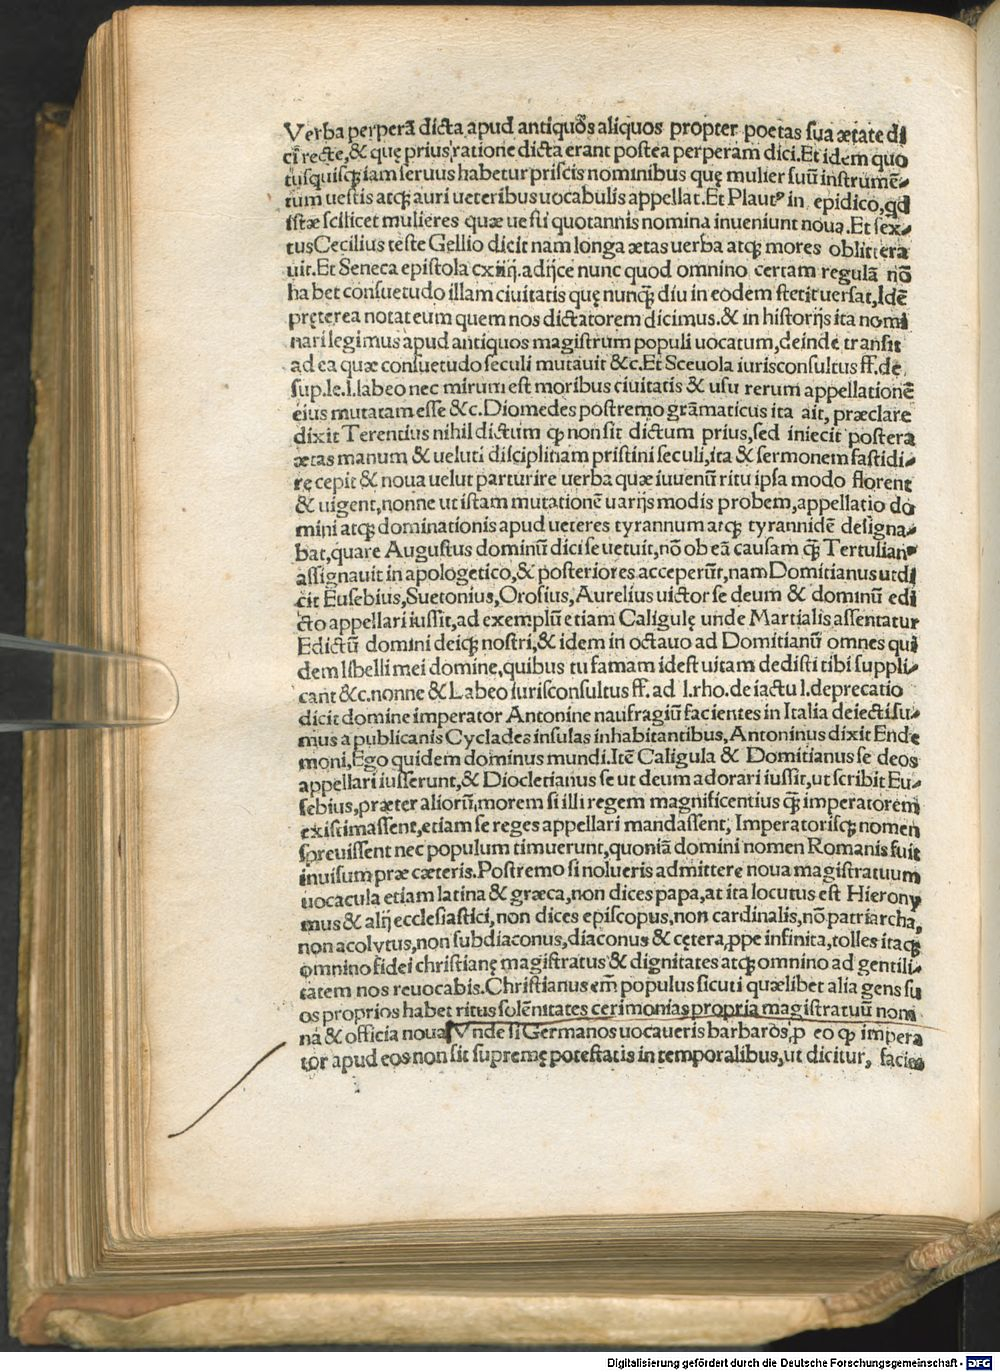 Verba perperã dicta apud antiquos aliquos propter poetas sua ætate di
ci recte, & quę prius ratione dicta erant postea perperam dici. Et idem quo
tusquisqꝫ iam seruus habetur priscis nominibus quę mulier suũ instrumẽ-
tum uestis atqꝫ auri ueteribus uocabulis appellat. Et Plautꝰ in epidico, qd
istæ scilicet mulieres quæ uesti quotannis nomina inueniunt noua. Et sex-
tus Cecilius teste Gellio dicit nam longa ætas uerba atqꝫ mores oblittera
uit. Et Seneca epistola cxiiij. adijce nunc quod omnino certam regulã nõ
habet consuetudo illam ciuitatis quę nunqꝫ̃ diu in eodem stetit uersat, Idẽ
pręterea notat eum quem nos dictatorem dicimus. & in historijs ita nomi
nari legimus apud antiquos magistrum populi uocatum, deinde transit
ad ea quæ consuetudo seculi mutauit &c. Et Sceuola iurisconsultus ff. de
sup. le. l. labeo nec mirum est moribus ciuitatis & usu rerum appellationẽ
eius mutatam esse &c. Diomedes postremo grãmaticus ita ait, præclare
dixit Terentius nihil dictum ꝙ non sit dictum prius, sed iniecit postera
ætas manum & ueluti disciplinam pristini seculi, ita & sermonem fastidi-
re cepit & noua uelut parturire uerba quæ iuuenũ ritu ipsa modo florent
& uigent, nonne ut istam mutationẽ uarijs modis probem, appellatio do
mini atqꝫ dominationis apud ueteres tyrannum atqꝫ tyrannidẽ designa-
bat, quare Augustus dominũ dici se uetuit, nõ ob eã causam qꝫ̃ Tertulianꝰ
assignauit in apologetico, & posteriores acceperũt, nam Domitianus ut di
cit Eusebius, Suetonius, Orosius, Aurelius uictor se deum & dominũ edi
cto appellari iussit, ad exemplũ etiam Caligulę unde Martialis assentatur
Edictũ domini deiqꝫ nostri, & idem in octauo ad Domitianũ omnes qui
dem libelli mei domine, quibus tu famam idest uitam dedisti tibi suppli
cant &c. nonne & Labeo iurisconsultus ff. ad l. rho. de iactu l. deprecatio
dicit domine imperator Antonine naufragiũ facientes in Italia deiecti su-
mus a publicanis Cyclades insulas inhabitantibus, Antoninus dixit Ende
moni, Ego quidem dominus mundi. Itẽ Caligula & Domitianus se deos
appellari iusserunt, & Diocletianus se ut deum adorari iussit, ut scribit Eu-
sebius, præter aliorũ, morem si illi regem magnificentius qꝫ̃ imperatorem
existimassent, etiam se reges appellari mandassent, Imperatorisqꝫ nomen
spreuissent nec populum timuerunt, quoniã domini nomen Romanis fuit
inuisum præ cæteris. Postremo si nolueris admittere noua magistratuum
uocacula etiam latina & græca, non dices papa, at ita locutus est Hierony
mus & alij ecclesiastici, non dices episcopus, non cardinalis, nõ patriarcha,
non acolytus, non subdiaconus, diaconus & cętera, ꝓpe infinita, tolles itaqꝫ
omnino fidei christianę magistratus & dignitates atqꝫ omnino ad gentili-
tatem nos reuocabis. Christianus em̃ populus sicuti quælibet alia gens su
os proprios habet ritus solẽnitates cerimonias propria magistratuũ nomi
na & officia noua, Vnde si Germanos uocaueris barbaros, ꝑ eo ꝙ impera
tor apud eos non sit supremę potestatis in temporalibus, ut dicitur, facies
Digitalisierung gefördert durch die Deutsche Forschungsgemeinschaft - DFG